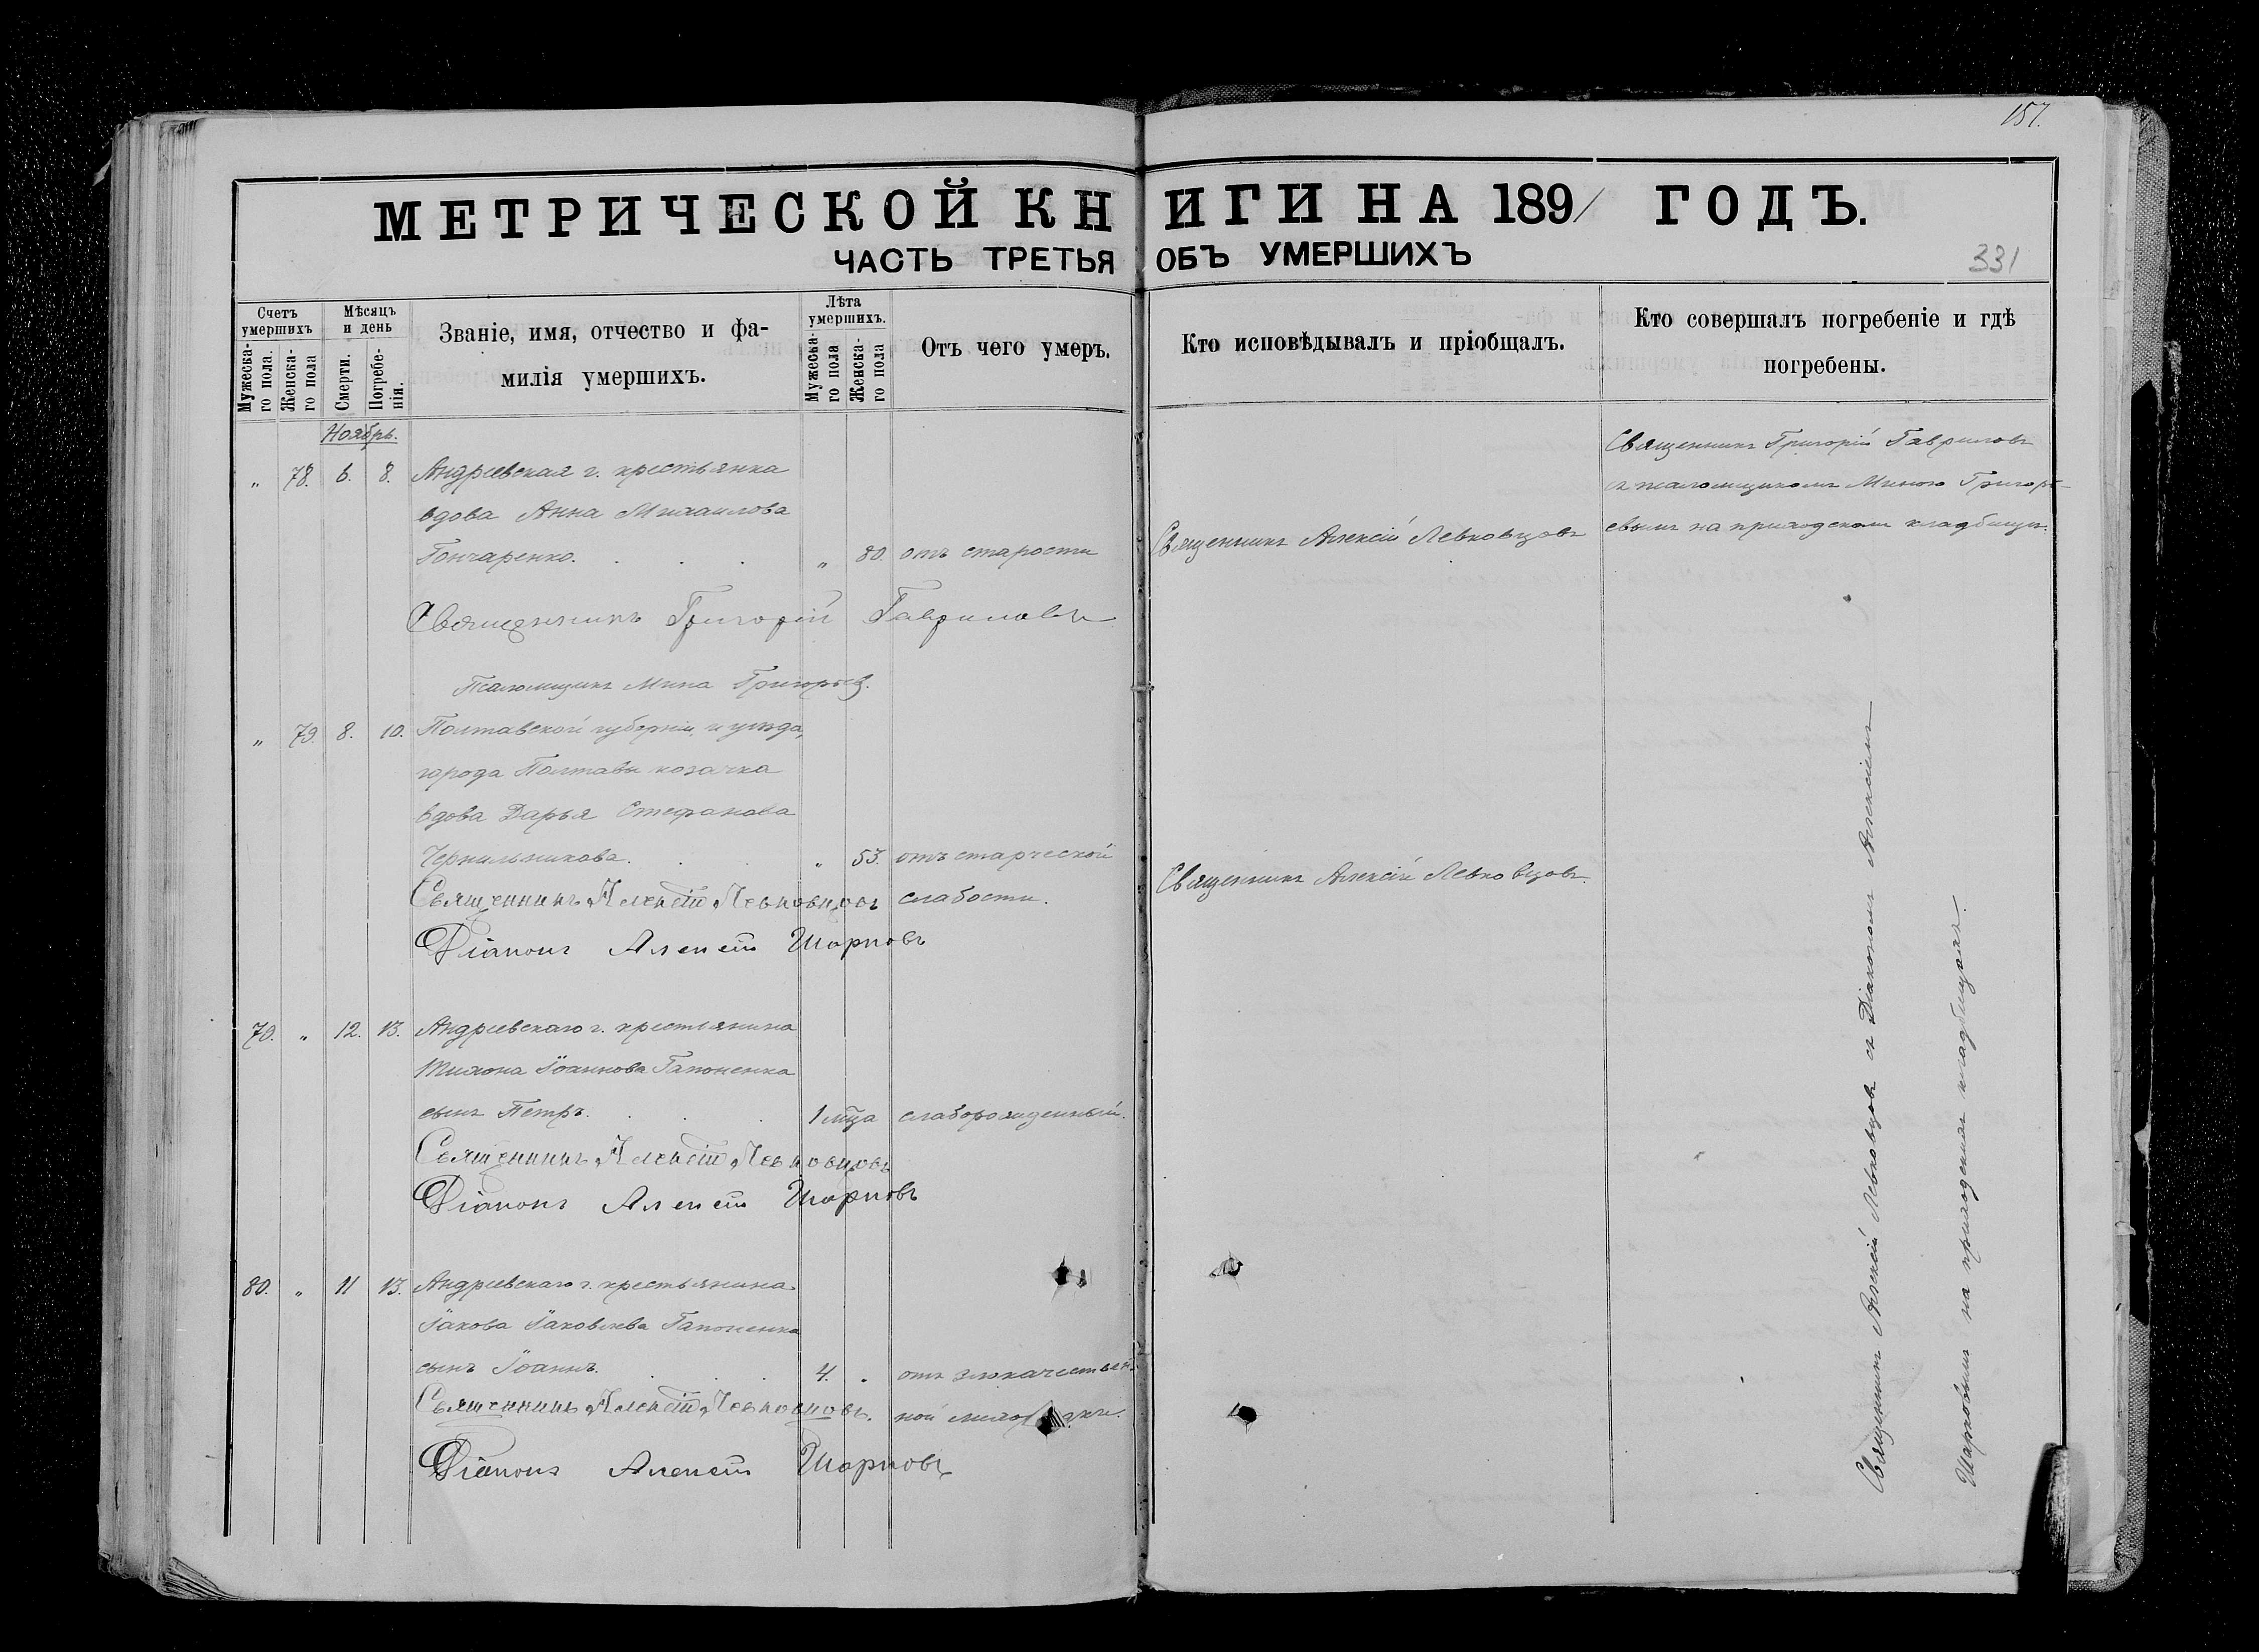 157.
МЕТРИЧЕСКОЙ КНИГИ НА 1891 ГОДЪ.
ЧАСТЬ ТРЕТЬЯ ОБЪ УМЕРШИХЪ
331
Счетъ умершихъ
Мужеска-го пола.
Женска-го пола
Мѣсяцъ и день
Смерти.
Погребе-нія.
Званіе, имя, отчество и фа-
милія умершихъ.
Лѣта умершихъ.
Мужеска-го пола
Женска-го пола
Отъ чего умеръ.
Кто исповѣдывалъ и пріобщалъ.
Кто совершалъ погребеніе и гдѣ
погребены.
Ноябрь.
" 78. 6. 8. Андреевская г. крестьянка
вдова Анна Михаилова
Гончаренко. " 80. отъ старости
Священникъ Алексій Левковцовъ
Священникъ Григорій Гавриловъ
съ псаломщикомъ Миною Григорь-
евымъ на приходскомъ кладбищѣ.
Священникъ Григорій Гавриловъ
Псаломщикъ Мина Григорьев.
" 79. 8. 10. Полтавской губерніи и уѣзда,
города Полтавы козачка
вдова Дарья Стефанова
Чернильникова. " 53. отъ старческой
слабости.
Священникъ Алексій Левковцовъ.
Священникъ Алексій Левковцовъ
Діаконъ Алексій Шарковъ
79. " 12. 13. Андреевскаго г. крестьянина
Тихона Іоаннова Гапоненка
сынъ Петръ. 1 мца слаборожденный.
Священникъ Алексій Левковцовъ
Діаконъ Алексій Шарковъ
80. " 11 13. Андреевскаго г. крестьянина
Іакова Іаковлева Гапоненка
сынъ Іоаннъ. 4. . отъ злокачествен-
ной
Священникъ Алексій Левковцовъ.
Діаконъ Алексій Шарковъ
Священникъ Алексій Левковцовъ съ Діакономъ Алексіемъ
Шарковымъ на приходскомъ кладбищѣ.